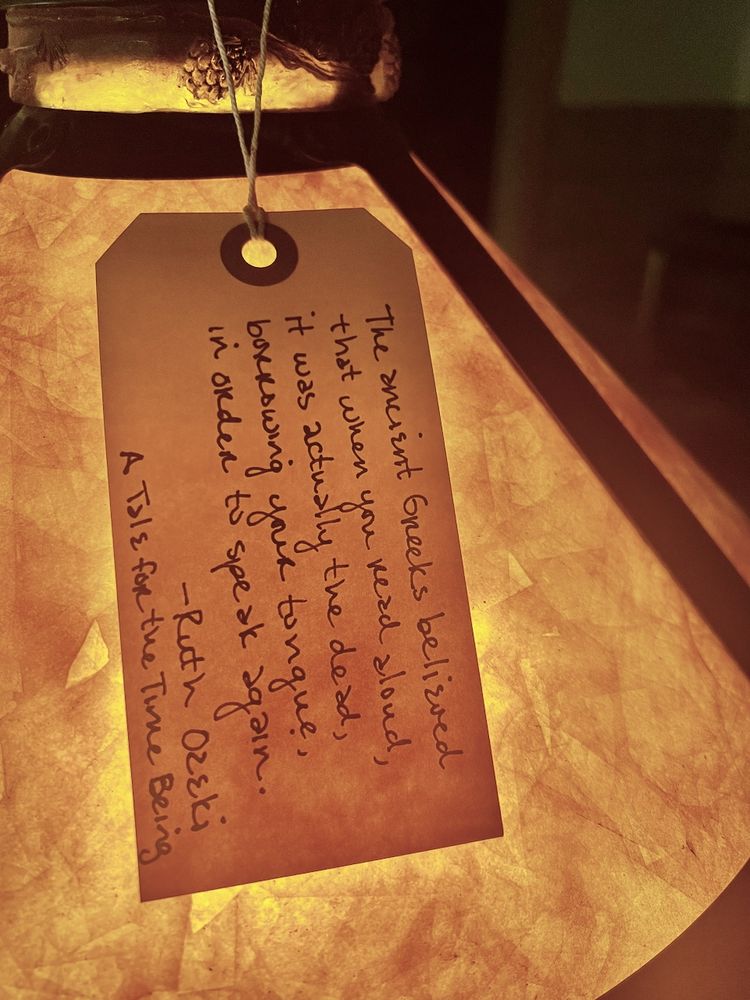 The ancient Greeks believed
that when you read aloud,
it was actually the dead,
borrowing your tongue,
in order to speak again.
-Ruth Ozeki
A Tale for the Time Being